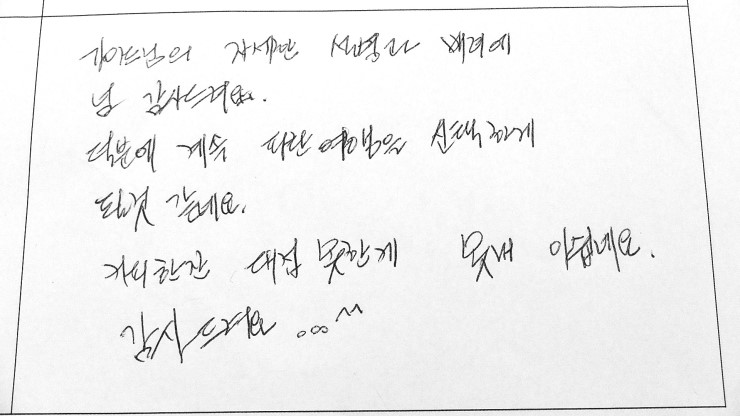 가이드님의 자세한 설명과 배려에
넘 감사드려요.
덕분에 계속 파란여행을 선택하게
될것 같네요.
커피한잔 대접 못한게 못내 아쉽네요.
감사드려요 ...^^